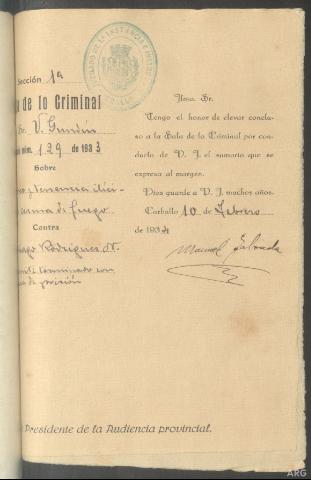 JUZGADO DE 1ª INSTANCIA E INSTRUCCIÓN
Sección 1ª
de lo Criminal
Sr. V. Gundín
núm. 129 de 1933
Sobre
y tenencia ilíci-
arma de fuego
Contra
Rodríguez
terminado con
de prisión
Ilmo. Sr.
Tengo el honor de elevar conclu-
so a la Sala de lo Criminal por con-
ducto de V. I. el sumario que se
expresa al margen.
Dios guarde a V. I. muchos años.
Carballo 10 de Febrero
de 1934
Manuel
Presidente de la Audiencia provincial.
ARG